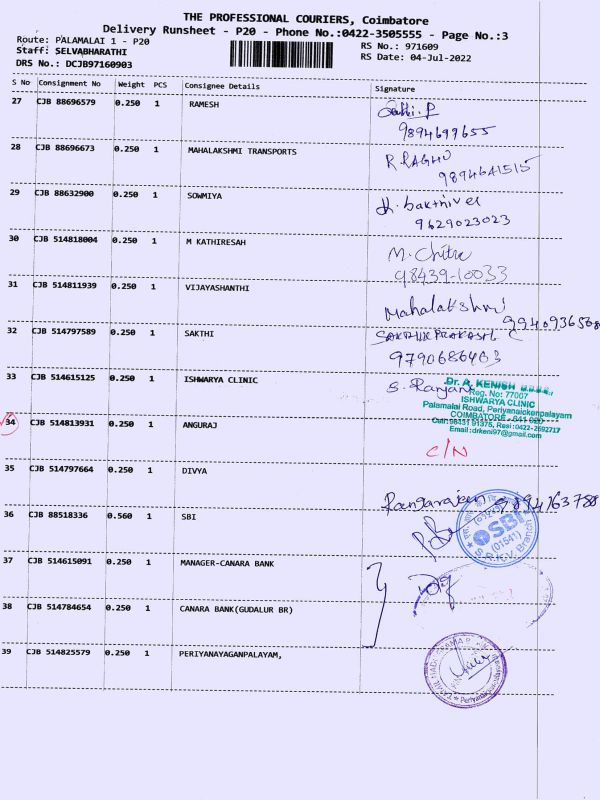 THE PROFESSIONAL COURIERS, Coimbatore
Delivery Runsheet - P20 - Phone No.:0422-3505555 - Page No.:3
Route: PALAMALAI 1 - P20
RS No.: 971609
Staff: SELVABHARATHI
RS Date: 04-Jul-2022
DRS No.: DCJB97160903
S No Consignment No Weight PCS Consignee Details Signature
27 CJB 88696579 0.250 1 RAMESH
9894699655
28 CJB 88696673 0.250 1 MAHALAKSHMI TRANSPORTS R RAGHU
9894641515
29 CJB 88632900 0.250 1 SOWMIYA
9629023023
30 CJB 514818004 0.250 1 M KATHIRESAH M. Chitra
98439-10033
31 CJB 514811939 0.250 1 VIJAYASHANTHI Mahalakshmi
32 CJB 514797589 0.250 1 SAKTHI
9790686403
33 CJB 514615125 0.250 1 ISHWARYA CLINIC S. Ranjani
Dr. A. KENISH
Reg. No: 77007
ISHWARYA CLINIC
Palamalai Road, Periyanaickenpalayam
COIMBATORE - 641 020
Email: drkeni97@gmail.com
34 CJB 514813931 0.250 1 ANGURAJ C/N
35 CJB 514797664 0.250 1 DIVYA
36 CJB 88518336 0.560 1 SBI
SBI
(01541)
S.R.K.V. Branch
37 CJB 514615091 0.250 1 MANAGER-CANARA BANK
38 CJB 514784654 0.250 1 CANARA BANK(GUDALUR BR)
39 CJB 514825579 0.250 1 PERIYANAYAGANPALAYAM,